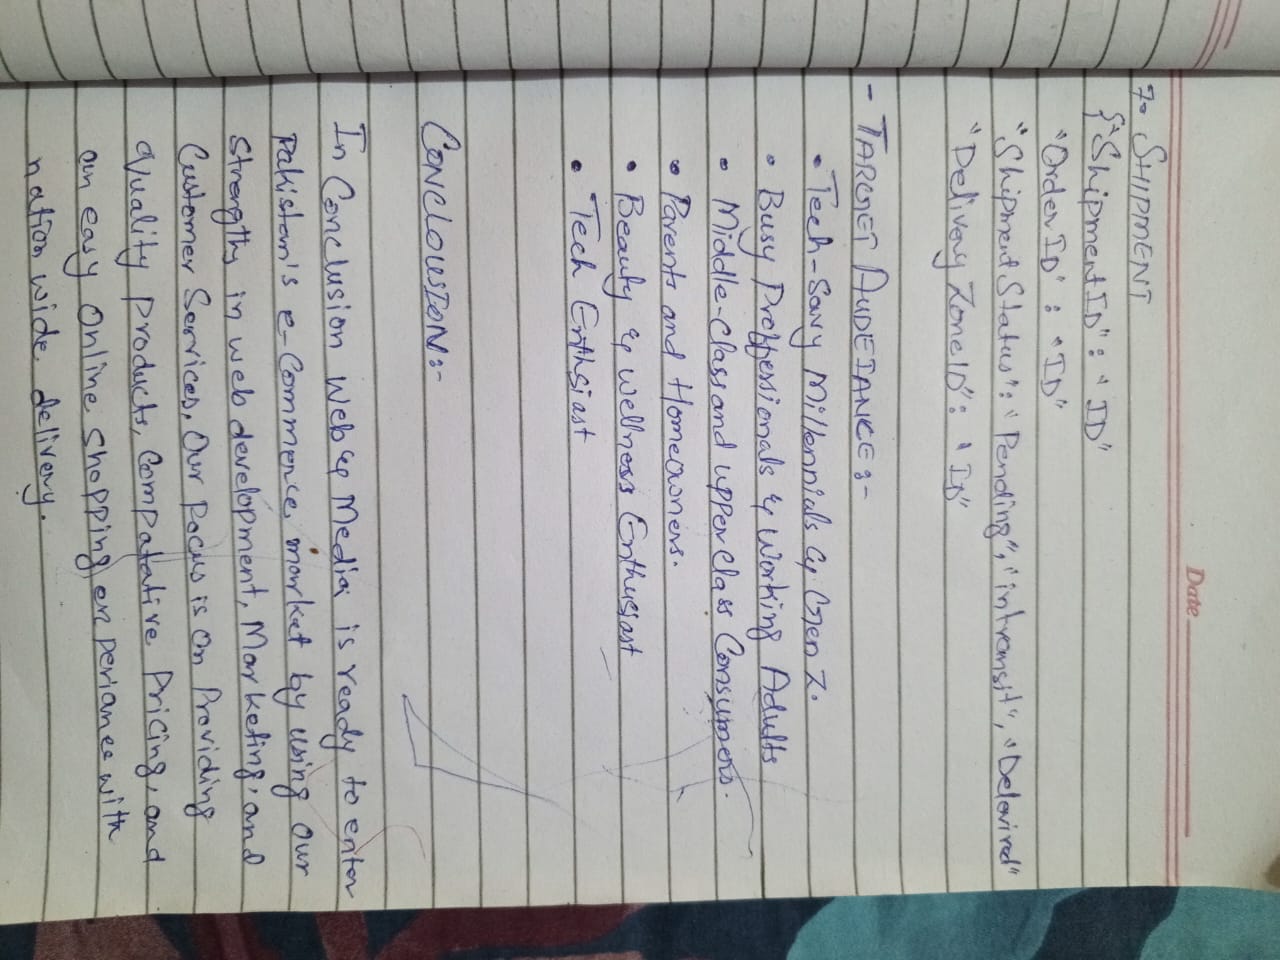 Date
7. SHIPMENT
{"ShipmentID": "ID"
"OrderID" : "ID"
"Shipment Status": "Pending", "intransit", "Delavired"
"Delivery ZoneID": "ID"
- TARGET AUDEIANCE:-
• Tech-Savy Millennials & Gen Z.
• Busy Proffessionals & Working Adults
• Middle-Class and upper Class Consumers.
• Parents and Homeowners.
• Beauty & wellness Enthusiast
• Tech Enthsiast
CONCLOUSION:-
In Conclusion Web & Media is ready to enter
Pakistan's e-Commerce market by using our
Strengths in web development, Marketing, and
Customer Services. Our Focus is on Providing
Quality Products, Compatative Pricing, and
an easy Online Shopping experiance with
nation wide delivery.